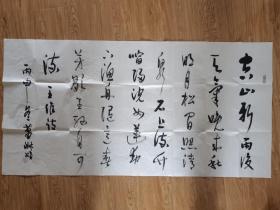 空山新雨後
天氣晚來秋
明月松間照清
泉石上流竹
喧歸浣女蓮動
下漁舟隨意春
芳歇王孫自可
留王維詩
丙申冬